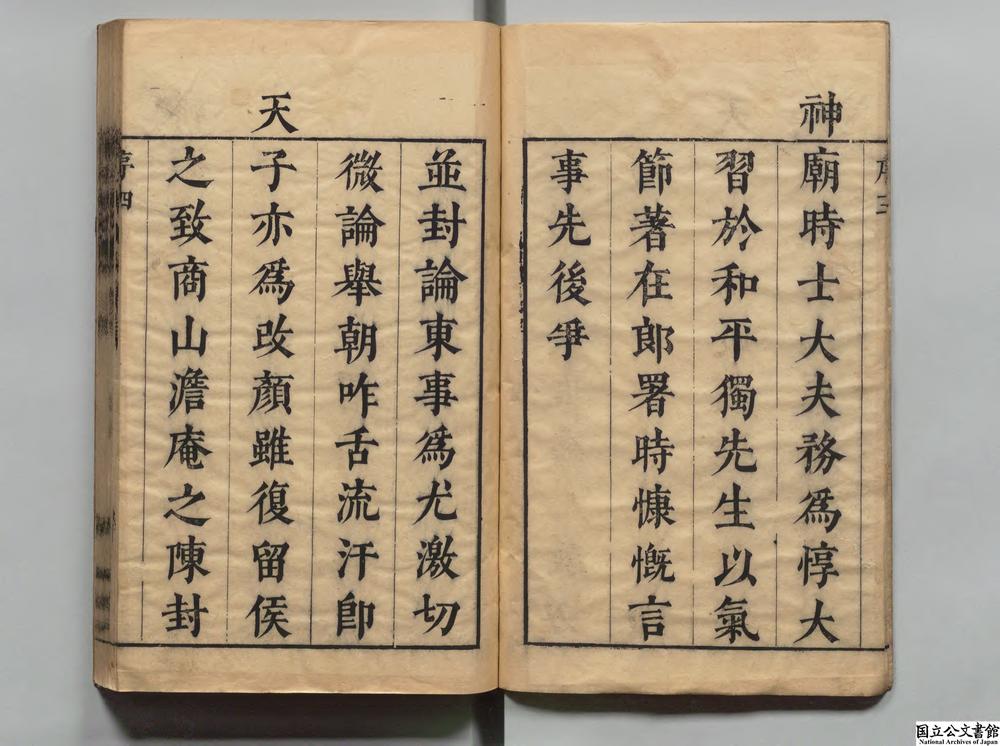 神廟時士大夫務爲惇大
習於和平獨先生以氣
節著在郎署時慷慨言
事先後爭
並封論東事爲尤激切
微論舉朝咋舌流汗卽
天子亦爲改顏雖復留侯
之致商山澹庵之陳封
序四
国立公文書館
National Archives of Japan